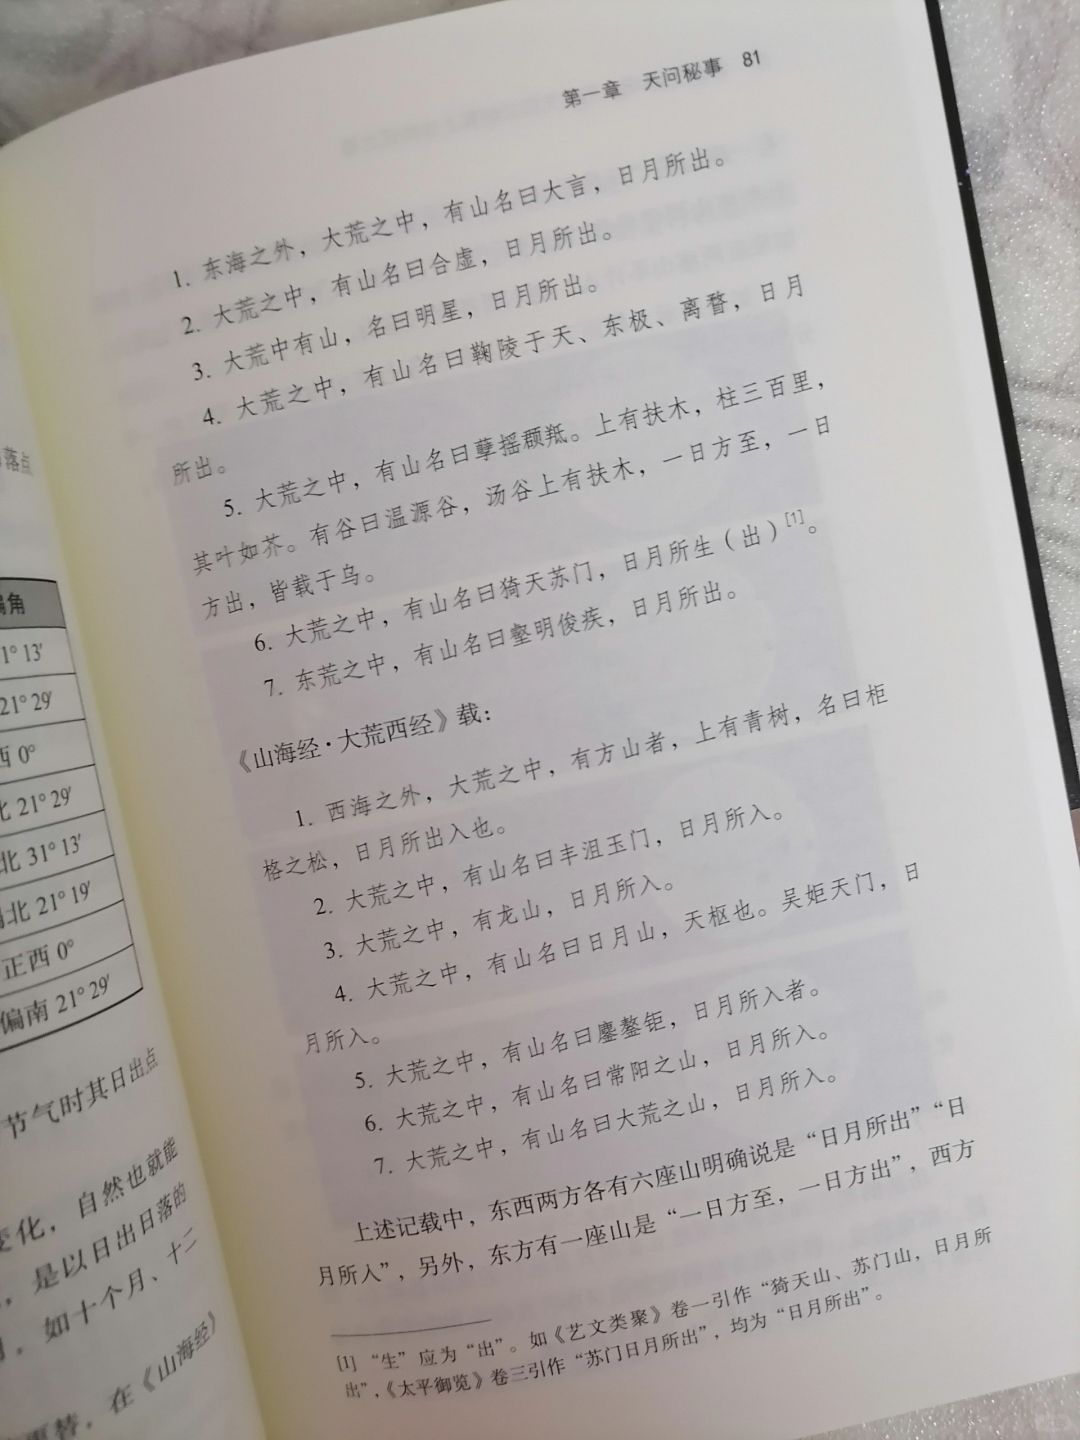 第一章 天问秘事 81
1. 东海之外，大荒之中，有山名曰大言，日月所出。
2. 大荒之中，有山名曰合虚，日月所出。
3. 大荒中有山，名曰明星，日月所出。
4. 大荒之中，有山名曰鞠陵于天、东极、离瞀，日月
所出。
5. 大荒之中，有山名曰孽摇頵羝。上有扶木，柱三百里，
其叶如芥。有谷曰温源谷，汤谷上有扶木，一日方至，一日
方出，皆载于乌。
6. 大荒之中，有山名曰猗天苏门，日月所生（出）[1]。
7. 东荒之中，有山名曰壑明俊疾，日月所出。
《山海经·大荒西经》载：
1. 西海之外，大荒之中，有方山者，上有青树，名曰柜
格之松，日月所出入也。
2. 大荒之中，有山名曰丰沮玉门，日月所入。
3. 大荒之中，有龙山，日月所入。
4. 大荒之中，有山名曰日月山，天枢也。吴姖天门，日
月所入。
5. 大荒之中，有山名曰鏖鏊钜，日月所入者。
6. 大荒之中，有山名曰常阳之山，日月所入。
7. 大荒之中，有山名曰大荒之山，日月所入。
上述记载中，东西两方各有六座山明确说是“日月所出”“日
月所入”，另外，东方有一座山是“一日方至，一日方出”，西方
[1] “生”应为“出”。如《艺文类聚》卷一引作“猗天山、苏门山，日月所
出”，《太平御览》卷三引作“苏门日月所出”，均为“日月所出”。
落点
偏角
1° 13′
21° 29′
西 0°
北 21° 29′
北 31° 13′
北 21° 19′
正西 0°
偏南 21° 29′
节气时其日出点
变化，自然也就能
是以日出日落的
如十个月、十二
更替，在《山海经》